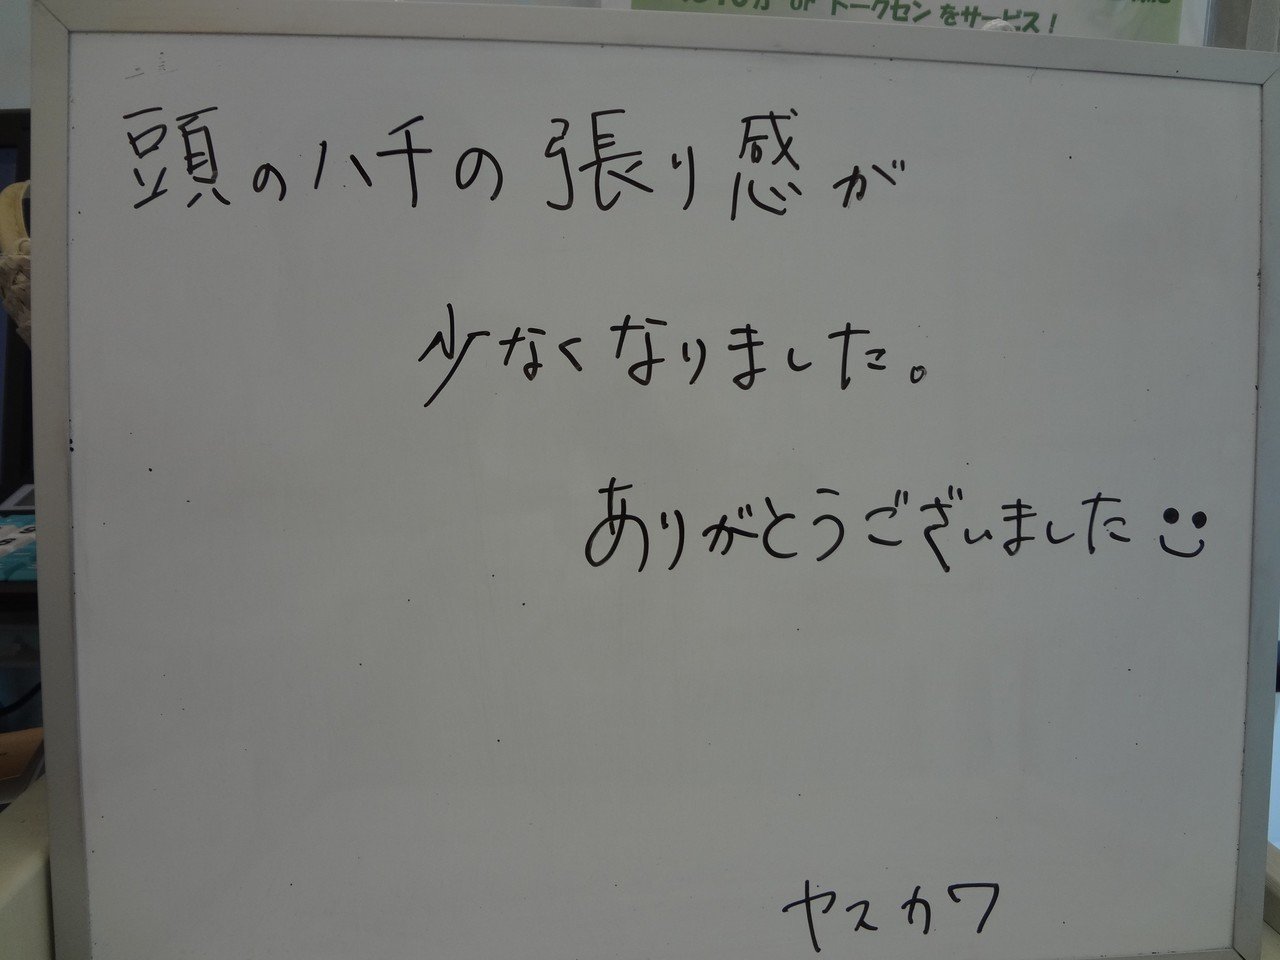 or トークセンをサービス!
頭のハチの張り感が
少なくなりました。
ありがとうございました
ヤスカワ